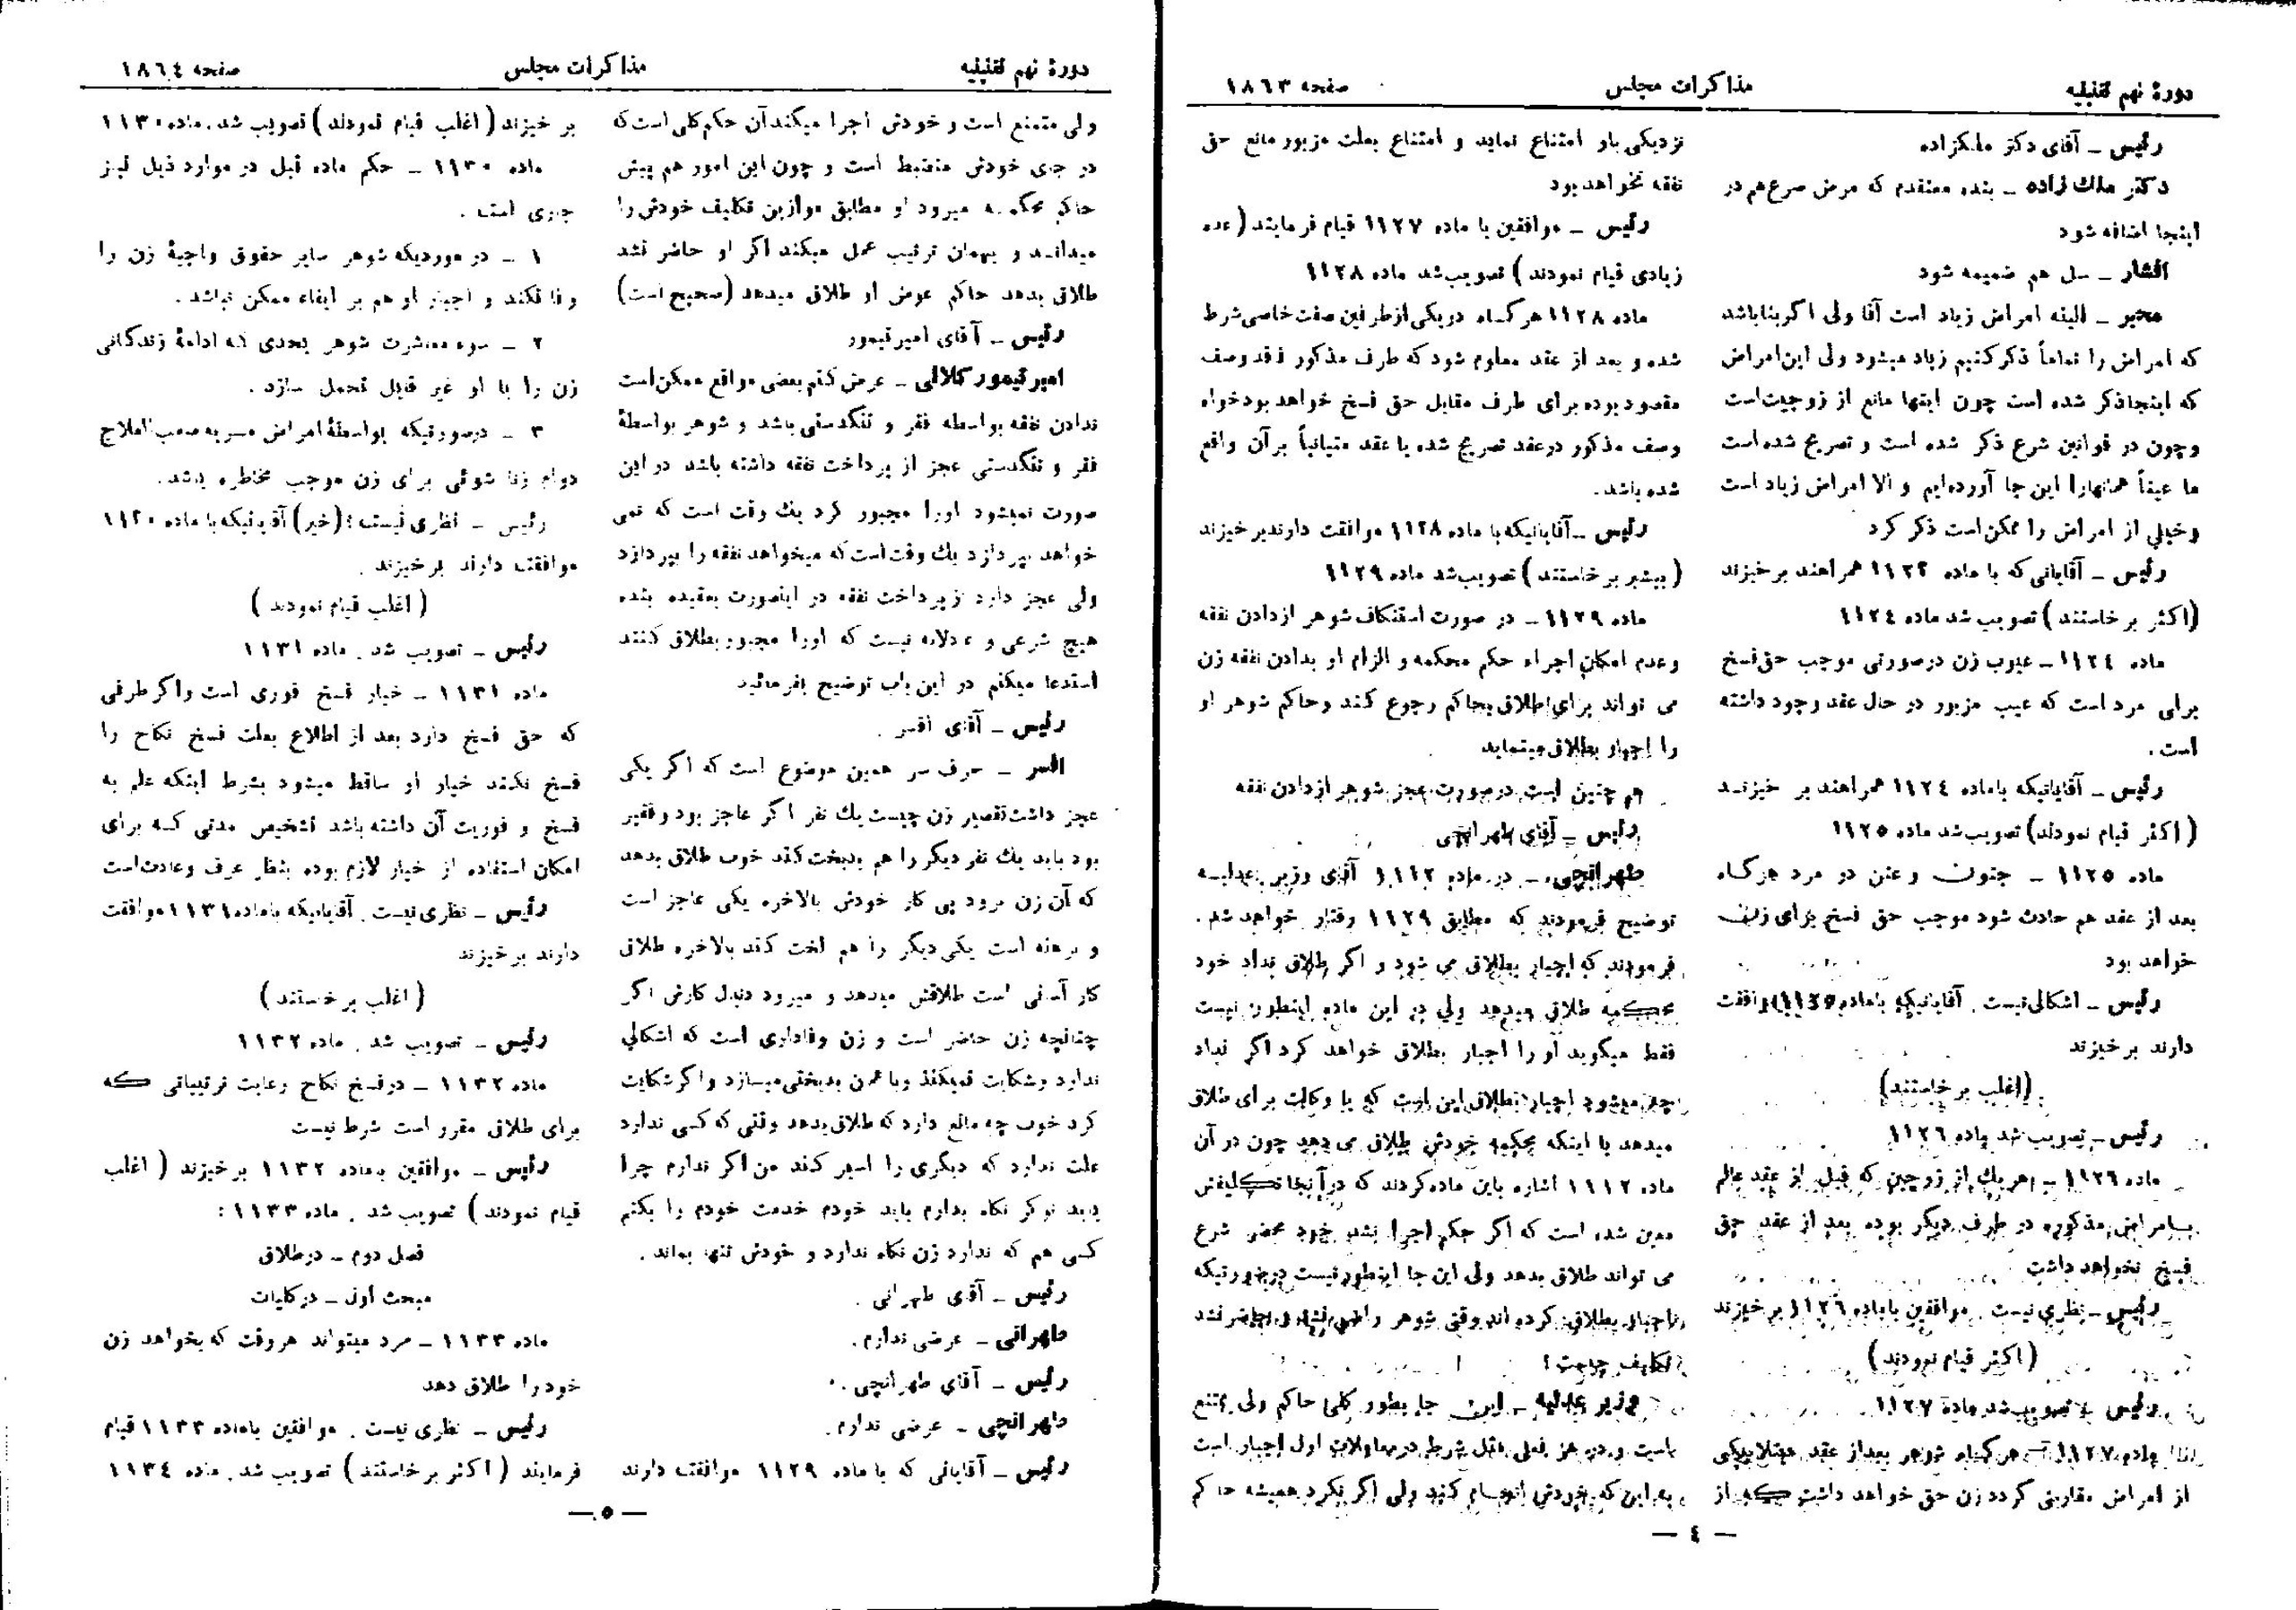 دورهٔ نهم تقنینیه مذاکرات مجلس صفحه ۱۸٦۳
رئیس ـ آقای دکتر ملکزاده
دکتر ملك زاده ـ بنده معتقدم که مرض صرع هم در
اینجا اضافه شود
افشار ـ سل هم ضمیمه شود
مخبر ـ البته امراض زیاد است آقا ولی اگر بنا باشد
که امراض را تماماً ذکر کنیم زیاد میشود ولی این امراض
که اینجا ذکر شده است چون اینها مانع از زوجیت است
و چون در قوانین شرع ذکر شده است و تصریح شده است
ما عیناً همانها را این جا آورده‌ایم و الا امراض زیاد است
و خیلی از امراض را ممکن است ذکر کرد
رئیس ـ آقایانی که با ماده ۱۱۲۳ همراهند برخیزند
(اکثر برخاستند) تصویب شد ماده ۱۱۲٤
ماده ۱۱۲٤ ـ عیوب زن درصورتی موجب حق فسخ
برای مرد است که عیب مزبور در حال عقد وجود داشته
است .
رئیس ـ آقایانیکه با ماده ۱۱۲٤ همراهند بر خیزند
(اکثر قیام نمودند) تصویب شد ماده ۱۱۲٥
ماده ۱۱۲٥ ـ جنون و عنن در مرد هرگاه
بعد از عقد هم حادث شود موجب حق فسخ برای زن
خواهد بود
رئیس ـ اشکالی نیست . آقایانیکه با ماده ۱۱۲٥ موافقت
دارند برخیزند
(اغلب برخاستند)
رئیس ـ تصویب شد ماده ۱۱۲٦
ماده ۱۱۲٦ ـ هر یك از زوجین که قبل از عقد عالم
بامراض مذکوره در طرف دیگر بوده بعد از عقد حق
فسخ نخواهد داشت
رئیس ـ نظری نیست . موافقین با ماده ۱۱۲٦ برخیزند
(اکثر قیام نمودند)
رئیس ـ تصویب شد ماده ۱۱۲۷
ماده ۱۱۲۷ ـ هر گاه شوهر بعد از عقد مبتلا بیکی
از امراض مقاربتی گردد زن حق خواهد داشت که از
نزدیکی با او امتناع نماید و امتناع بعلت مزبور مانع حق
نفقه نخواهد بود
رئیس ـ موافقین با ماده ۱۱۲۷ قیام فرمایند (عده
زیادی قیام نمودند) تصویب شد ماده ۱۱۲۸
ماده ۱۱۲۸ هر گاه در یکی از طرفین صفت خاصی شرط
شده و بعد از عقد معلوم شود که طرف مذکور فاقد وصف
مقصود بوده برای طرف مقابل حق فسخ خواهد بود خواه
وصف مذکور در عقد تصریح شده یا عقد متبانیاً بر آن واقع
شده باشد .
رئیس ـ آقایانیکه با ماده ۱۱۲۸ موافقت دارند برخیزند
(بیشتر برخاستند) تصویب شد ماده ۱۱۲۹
ماده ۱۱۲۹ ـ در صورت استنکاف شوهر از دادن نفقه
و عدم امکان اجراء حکم محکمه و الزام او بدادن نفقه زن
می تواند برای طلاق بحاکم رجوع کند و حاکم شوهر او
را اجبار بطلاق مینماید
هم چنین است در صورت عجز شوهر از دادن نفقه
رئیس ـ آقای طهرانچی
طهرانچی ـ در ماده ۱۱۱۲ آقای وزیر عدلیه
توضیح فرمودند که مطابق ۱۱۲۹ رفتار خواهد شد .
فرمودند که اجبار بطلاق می شود و اگر طلاق نداد خود
محکمه طلاق میدهد ولی در این ماده اینطور نیست
فقط میگوید او را اجبار بطلاق خواهد کرد اگر نداد
چه میشود اجبار بطلاق این است که یا وکالت برای طلاق
میدهد یا اینکه محکمه خودش طلاق می دهد چون در آن
ماده ۱۱۱۲ اشاره باین ماده کردند که در آنجا تکلیفش
معین شده است که اگر حکم اجرا نشد خود محضر شرع
می تواند طلاق بدهد ولی این جا اینطور نیست درصورتیکه
اجبار بطلاق کرده اند وقتی شوهر راضی نشد و حاضر نشد
تکلیف چیست ؟
وزیر عدلیه ـ این جا بطور کلی حاکم ولی ممتنع
است و در هر فعلی مثل شرط در معاملات اول اجبار است
به این که خودش انجام کند ولی اگر نکرد همیشه حاکم
— ٤ —
دورهٔ نهم تقنینیه مذاکرات مجلس صفحه ۱۸٦٤
ولی ممتنع است و خودش اجرا میکند آن حکم کلی است که
در جای خودش منضبط است و چون این امور هم پیش
حاکم محکمه میرود او مطابق موازین تکلیف خودش را
میداند و بهمان ترتیب عمل میکند اگر او حاضر نشد
طلاق بدهد حاکم عوض او طلاق میدهد (صحیح است)
رئیس ـ آقای امیر تیمور
امیر تیمور کلالی ـ عرض کنم بعضی مواقع ممکن است
ندادن نفقه بواسطه فقر و تنگدستی باشد و شوهر بواسطهٔ
فقر و تنگدستی عجز از پرداخت نفقه داشته باشد در این
صورت نمیشود او را مجبور کرد یك وقت است که نمی
خواهد بپردازد یك وقت است که میخواهد نفقه را بپردازد
ولی عجز دارد از پرداخت نفقه در اینصورت بعقیده بنده
هیچ شرعی و عادلانه نیست که او را مجبور بطلاق کنند
استدعا میکنم در این باب توضیح بفرمائید
رئیس ـ آقای افسر .
افسر ـ حرف سر همین موضوع است که اگر یکی
عجز داشت تقصیر زن چیست یك نفر اگر عاجز بود و فقیر
بود باید یك نفر دیگر را هم بدبخت کند خوب طلاق بدهد
که آن زن برود پی کار خودش بالاخره یکی عاجز است
و برهنه است یکی دیگر را هم لخت کند بالاخره طلاق
کار آسانی است طلاقش میدهد و میرود دنبال کارش اگر
چنانچه زن حاضر است و زن وفاداری است که اشکالی
ندارد و شکایت نمیکند و با همان بدبختی میسازد و اگر شکایت
کرد خوب چه مانع دارد که طلاق بدهد وقتی که کسی ندارد
علت ندارد که دیگری را اسیر کند من اگر ندارم چرا
باید نوکر نگاه بدارم باید خودم خدمت خودم را بکنم
کسی هم که ندارد زن نگاه ندارد و خودش تنها بماند .
رئیس ـ آقای طهرانی .
طهرانی ـ عرضی ندارم .
رئیس ـ آقای طهرانچی .
طهرانچی ـ عرضی ندارم .
رئیس ـ آقایانی که با ماده ۱۱۲۹ موافقت دارند
بر خیزند (اغلب قیام نمودند) تصویب شد . ماده ۱۱۳۰
ماده ۱۱۳۰ ـ حکم ماده قبل در موارد ذیل نیز
جاری است .
۱ ـ در موردیکه شوهر سایر حقوق واجبهٔ زن را
وفا نکند و اجبار او هم بر ایفاء ممکن نباشد .
۲ ـ سوء معاشرت شوهر بحدی که ادامهٔ زندگانی
زن را با او غیر قابل تحمل سازد .
۳ ـ درصورتیکه بواسطهٔ امراض مسریه صعب العلاج
دوام زنا شوئی برای زن موجب مخاطره باشد .
رئیس ـ نظری نیست ؛ (خیر) آقایانیکه با ماده ۱۱۳۰
موافقت دارند برخیزند .
(اغلب قیام نمودند)
رئیس ـ تصویب شد . ماده ۱۱۳۱
ماده ۱۱۳۱ ـ خیار فسخ فوری است و اگر طرفی
که حق فسخ دارد بعد از اطلاع بعلت فسخ نکاح را
فسخ نکند خیار او ساقط میشود بشرط اینکه علم به
فسخ و فوریت آن داشته باشد تشخیص مدتی که برای
امکان استفاده از خیار لازم بوده بنظر عرف و عادت است
رئیس ـ نظری نیست . آقایانیکه با ماده ۱۱۳۱ موافقت
دارند برخیزند
(اغلب برخاستند)
رئیس ـ تصویب شد . ماده ۱۱۳۲
ماده ۱۱۳۲ ـ درفسخ نکاح رعایت ترتیباتی که
برای طلاق مقرر است شرط نیست
رئیس ـ موافقین با ماده ۱۱۳۲ برخیزند (اغلب
قیام نمودند) تصویب شد . ماده ۱۱۳۳ :
فصل دوم ـ درطلاق
مبحث اول ـ درکلیات
ماده ۱۱۳۳ ـ مرد میتواند هر وقت که بخواهد زن
خود را طلاق دهد
رئیس ـ نظری نیست . موافقین با ماده ۱۱۳۳ قیام
فرمایند (اکثر برخاستند) تصویب شد . ماده ۱۱۳٤
— ٥ —